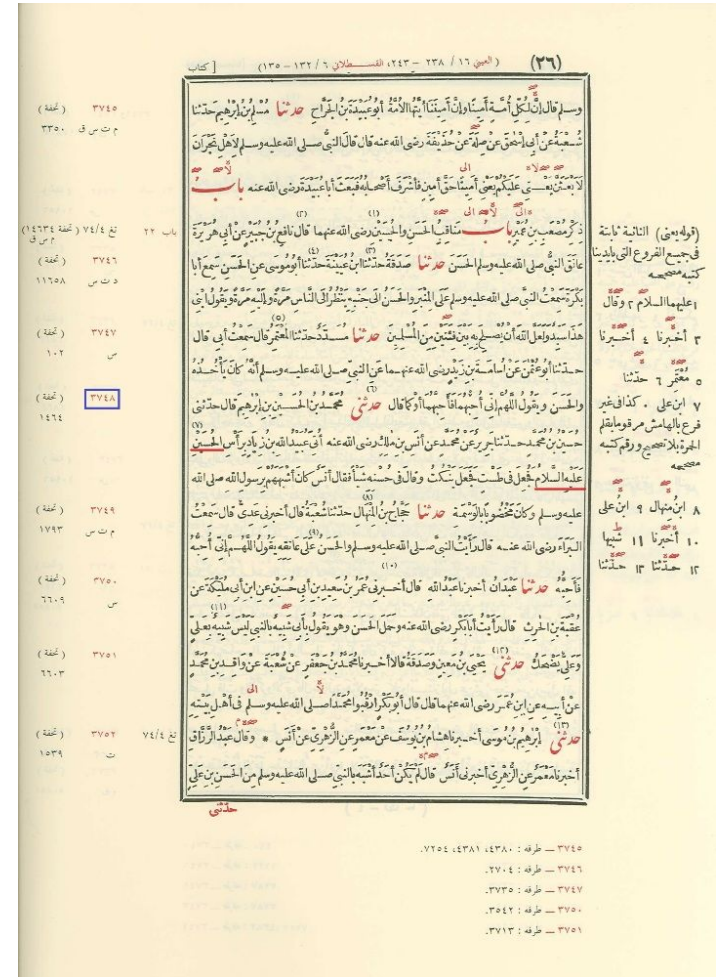 (٢٦) (العيني ١٦ / ٢٣٨ – ٢٤٣، القسطلاني ٦ / ١٣٢ – ١٣٥) [كتاب
وسلم قال إنّ لكلّ أمّة أمينًا وإنّ أميننا أيتها الأمّة أبو عبيدة بن الجراح حدثنا مسلم بن إبرهيم حدثنا
شعبة عن أبي إسحق عن صلة عن حذيفة رضى الله عنه قال قال النبىّ صلى الله عليه وسلم لاهل نجران
لأبعثنّ يعنى عليكم يعنى أمينا حقّ أمين فأشرف أصحابه فبعث أبا عبيدة رضى الله عنه باب
ذكر مصعب بن عمير باب مناقب الحسن والحسين رضى الله عنهما قال نافع بن جبير عن أبي هريرة
عانق النبى صلى الله عليه وسلم الحسن حدثنا صدقة حدثنا ابن عيينة حدثنا أبو موسى عن الحسن سمع أبا
بكرة سمعت النبى صلى الله عليه وسلم على المنبر والحسن الى جنبه ينظر الى الناس مرّة وإليه مرّة ويقول ابنى
هذا سيد ولعلّ الله أن يصلح به بين فئتين من المسلمين حدثنا مسدّد حدثنا المعتمر قال سمعت أبى قال
حدثنا أبو عثمن عن أسامة بن زيد رضى الله عنهما عن النبى صلى الله عليه وسلم أنّه كان يأخذه
والحسن ويقول اللهمّ إنّى أحبّهما فأحبّهما أو كما قال حدثني محمد بن الحسين بن إبرهيم قال حدثنى
حسين بن محمد حدثنا جرير عن محمد عن أنس بن ملك رضى الله عنه أتى عبيد الله بن زياد برأس الحسين
عليه السلام فجعل فى طست فجعل ينكت وقال فى حسنه شيأ فقال أنس كان أشبههم برسول الله صلى الله
عليه وسلم وكان مخضوبا بالوسمة حدثنا حجاج بن المنهال حدثنا شعبة قال أخبرنى عدىّ قال سمعت
البراء رضى الله عنه قال رأيت النبىّ صلى الله عليه وسلم والحسن على عاتقه يقول اللهمّ إنّى أحبّه
فأحبّه حدثنا عبدان أخبرنا عبد الله قال أخبرنى عمر بن سعيد بن أبى حسين عن ابن أبى مليكة عن
عقبة بن الحرث قال رأيت أبا بكر رضى الله عنه وحمل الحسن وهو يقول بأبى شبيه بالنبى ليس شبيه بعلىّ
وعلىّ يضحك حدثني يحيى بن معين وصدقة قالا أخبرنا محمد بن جعفر عن شعبة عن واقد بن محمد
عن أبيه عن ابن عمر رضى الله عنهما قال قال أبو بكر ارقبوا محمدا صلى الله عليه وسلم فى أهل بيته
حدثني إبرهيم بن موسى أخبرنا هشام بن يوسف عن معمر عن الزهرىّ عن أنس * وقال عبد الرزّاق
أخبرنا معمر عن الزهرىّ أخبرنى أنس قال لم يكن أحد أشبه بالنبى صلى الله عليه وسلم من الحسن بن علىّ
حدّثنى
(قوله يعنى) الثانية ثابتة
فى جميع الفروع التى بايدينا
كتبه مصححه
١ عليهما السلام ٢ وقال
٣ أخبرنا ٤ أخبرنا
٥ معتمر ٦ حدثنا
٧ ابن على . كذا فى غير
فرع بالهامش مرقوما بقلم
الحمرة بلا تصحيح ورقم كتبه
مصححه
٨ ابن منهال ٩ ابن على
١٠ أخبرنا ١١ شبيها
١٢ حدثنا ١٣ حدثنا
٣٧٤٥ (تحفة)
م ت س ق ٣٣٥٠
باب ٢٢ تغ ٧٤/٤ (تحفة ١٤٦٣٤)
م س ق
٣٧٤٦ (تحفة)
د ت س ١١٦٥٨
٣٧٤٧ (تحفة)
س ١٠٢
٣٧٤٨ (تحفة)
١٤٦٤
٣٧٤٩ (تحفة)
م ت س ١٧٩٣
٣٧٥٠ (تحفة)
س ٦٦٠٩
٣٧٥١ (تحفة)
٦٦٠٣
تغ ٧٤/٤ ٣٧٥٢ (تحفة)
ت ١٥٣٩
٣٧٤٥ — طرفه : ٤٣٨٠، ٤٣٨١، ٧٢٥٤.
٣٧٤٦ — طرفه : ٢٧٠٤.
٣٧٤٧ — طرفه : ٣٧٣٥.
٣٧٥٠ — طرفه : ٣٥٤٢.
٣٧٥١ — طرفه : ٣٧١٣.